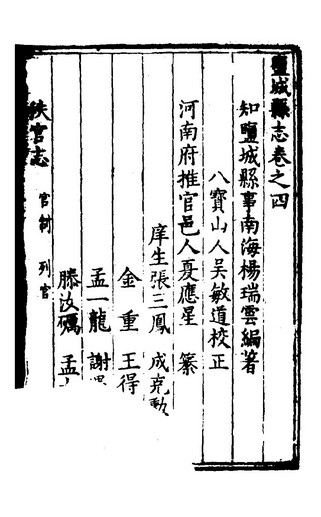 鹽城縣志卷之四
知鹽城縣事南海楊瑞雲編著
八寶山人吳敏道校正
河南府推官邑人夏應星 纂
庠生張三鳳 成克勤
金重 王得
孟一龍 謝
滕汝礪 孟
秩官志 官制 列官